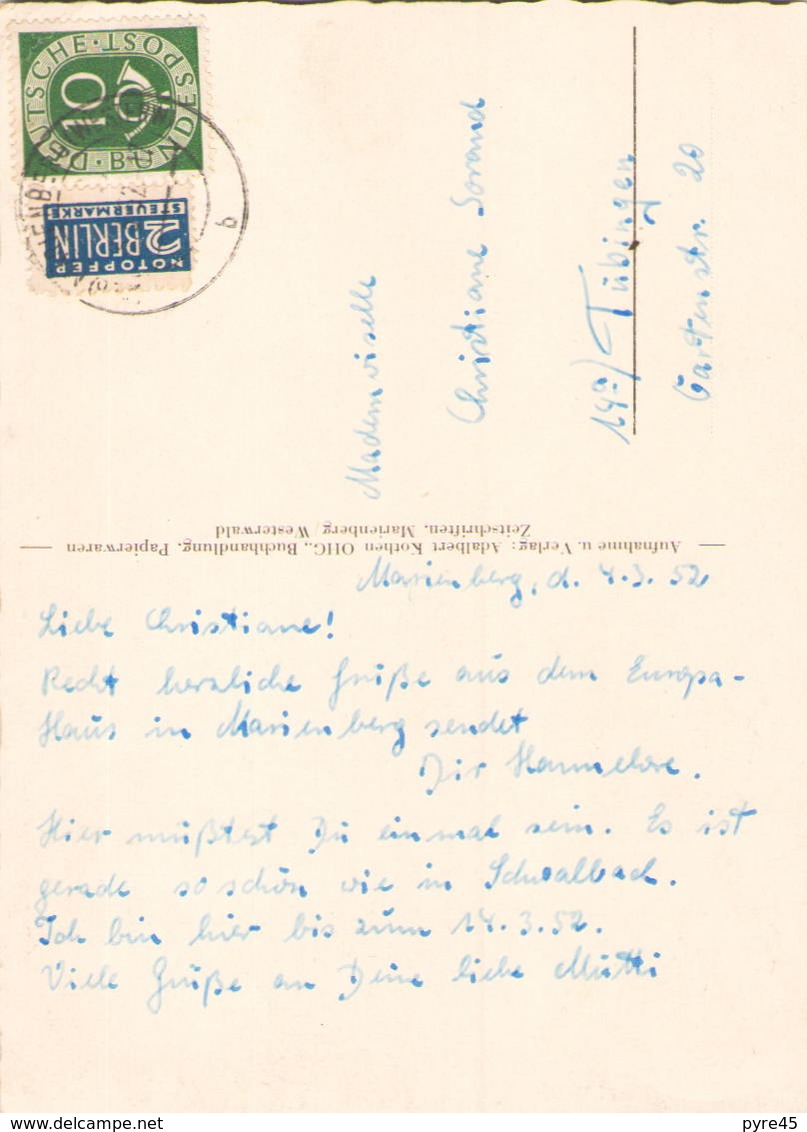 DEUTSCHE · POST · BUNDES
10
NOTOPFER
2 BERLIN
STEUERMARKE
b
Mademoiselle
Christiane Sorand
14a) Tübingen
Gartenstr. 20
Aufnahme u. Verlag: Adalbert Kothen OHG., Buchhandlung, Papierwaren
Zeitschriften, Marienberg/Westerwald
Marienberg, d. 4.3.52
Liebe Christiane!
Recht herzliche Grüße aus dem Europa-
Haus in Marienberg sendet
Dir Hannelore.
Hier müßtest Du einmal sein. Es ist
gerade so schön wie in Schwalbach.
Ich bin hier bis zum 14.3.52.
Viele Grüße an Deine liebe Mutti
delcampe.net
pyre45